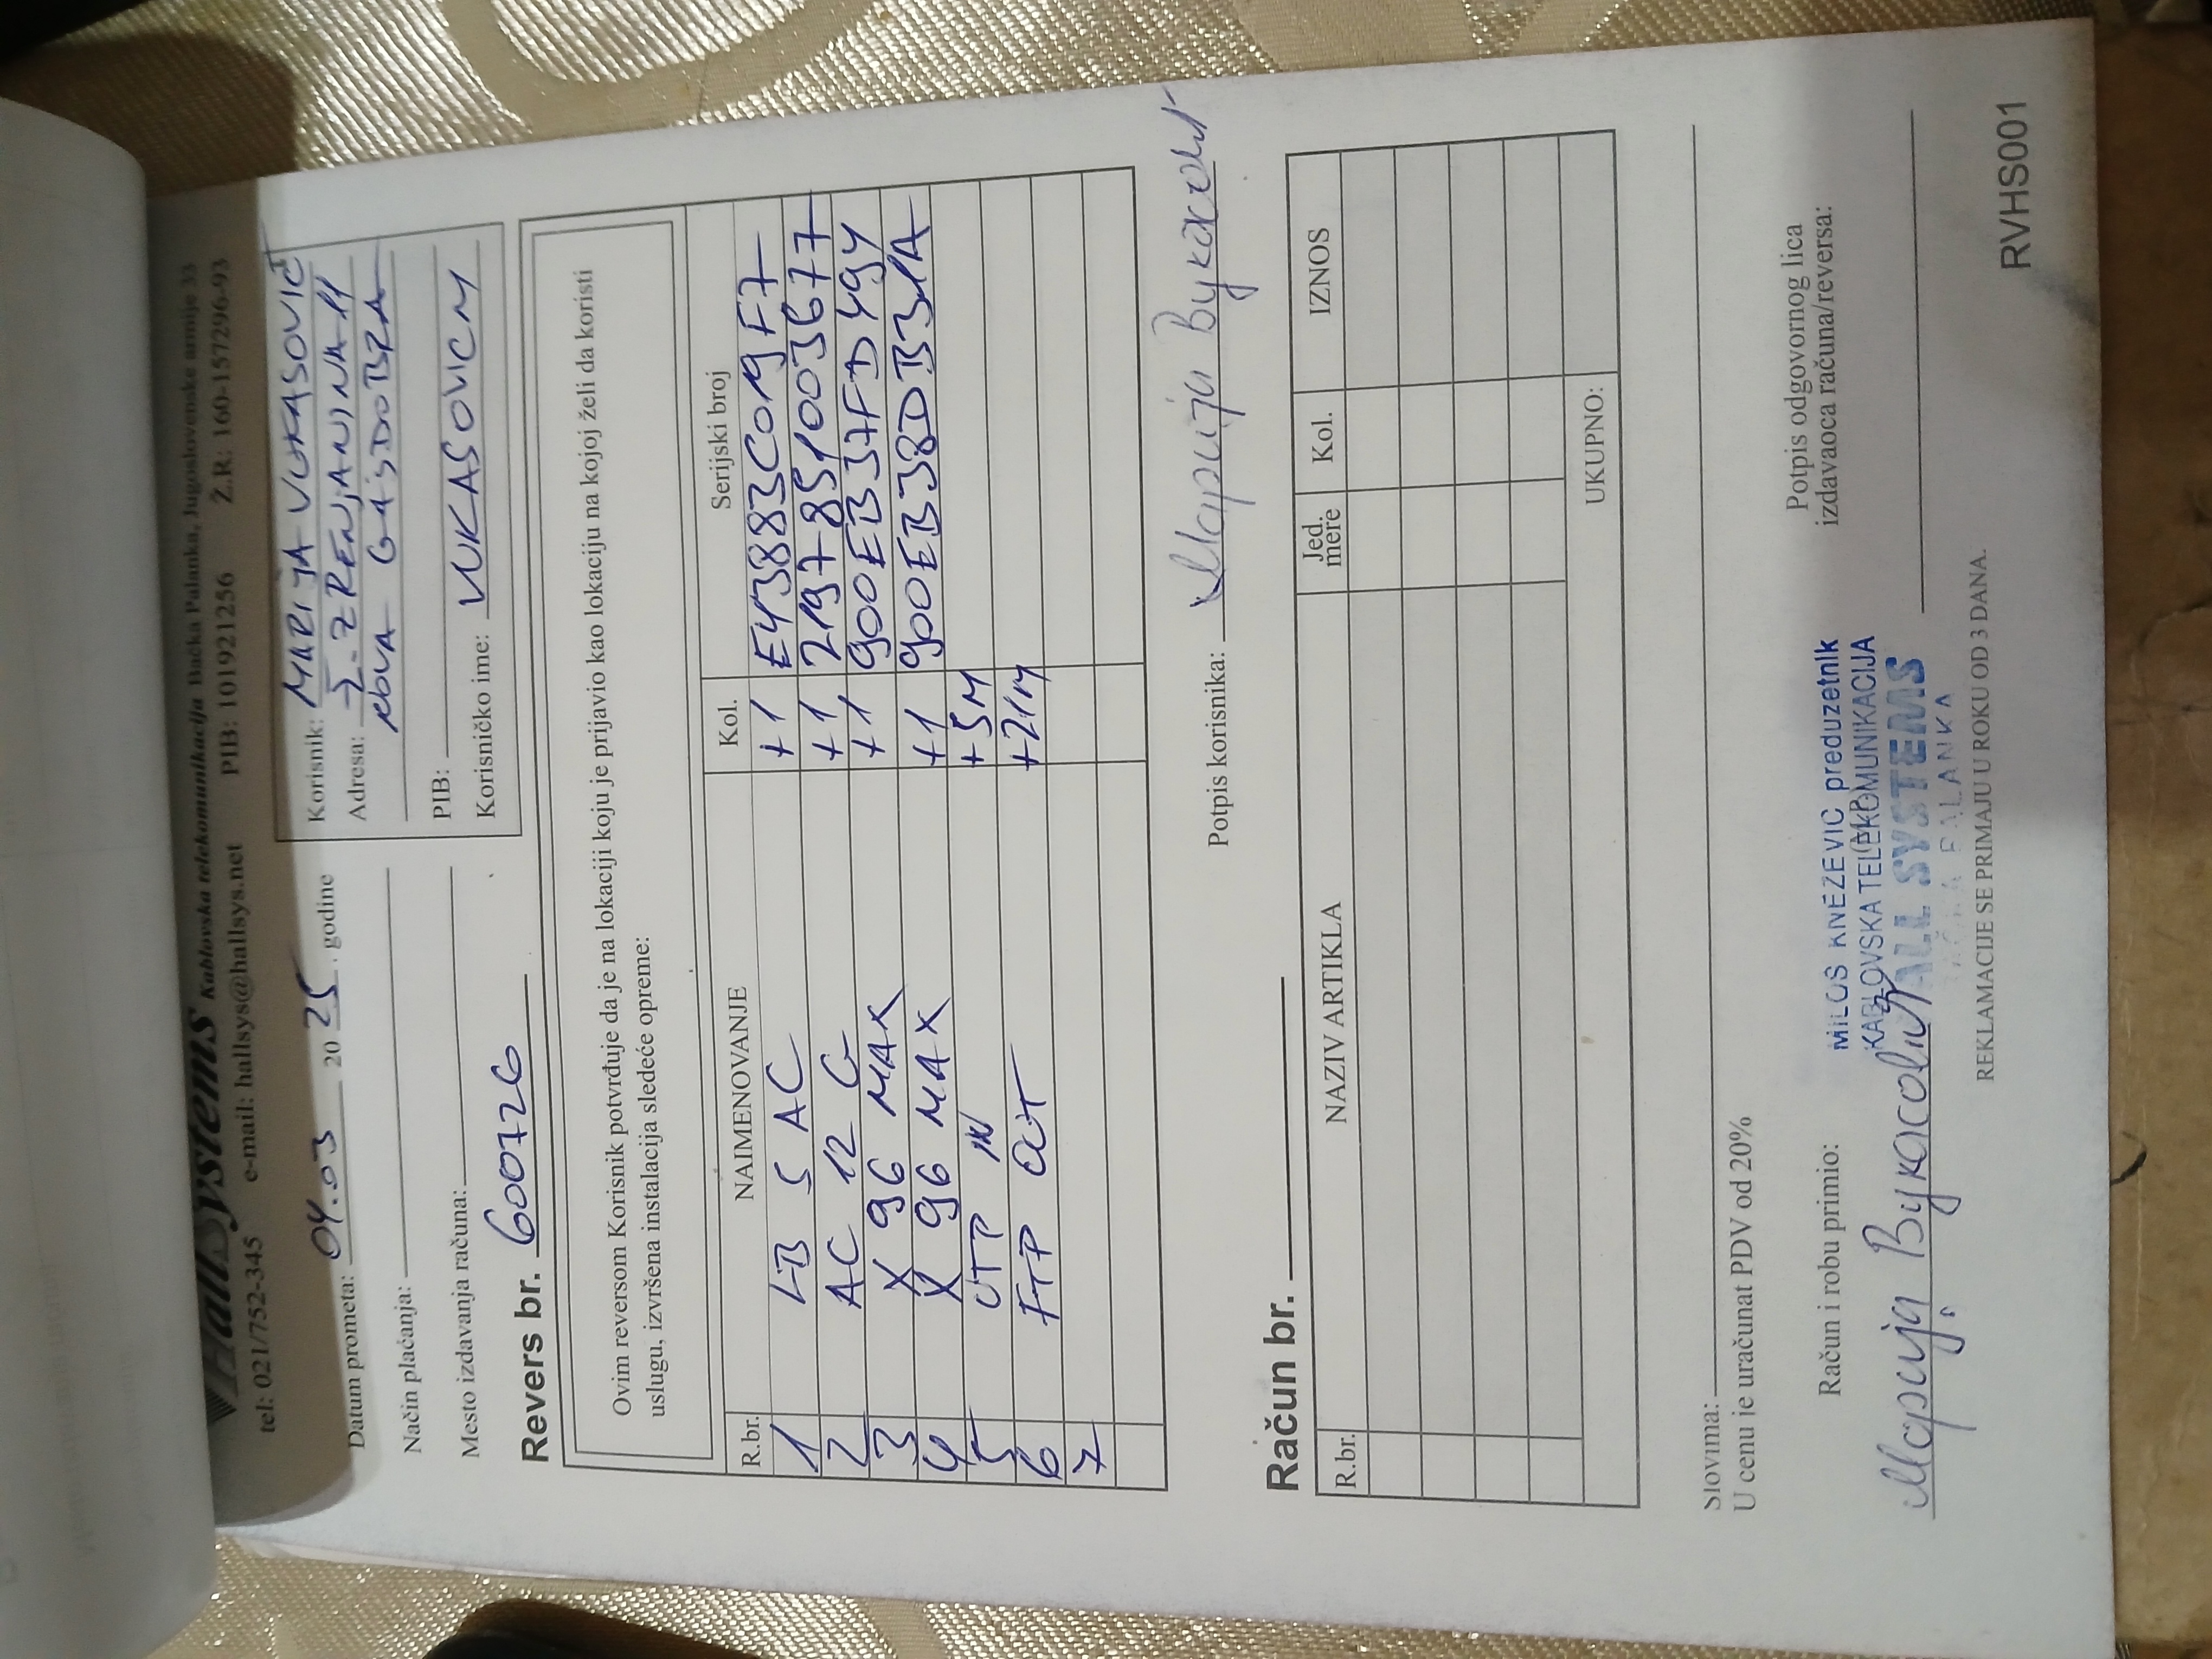 HallSystems Kablovska telekomunikacija Bačka Palanka, Jugoslovenske armije 33
tel: 021/752-345 e-mail: hallsys@hallsys.net PIB: 101921256 Ž.R: 160-157296-93
Datum prometa: 04.03 2025. godine
Način plaćanja:
Mesto izdavanja računa:
Korisnik: MARIJA VUKASOVIĆ
Adresa: Ž. ZRENJANINA 11
NOVA GAJDOBRA
PIB:
Korisničko ime: VUKASOVICM
Revers br. 600726
Ovim reversom Korisnik potvrđuje da je na lokaciji koju je prijavio kao lokaciju na kojoj želi da koristi
uslugu, izvršena instalacija sledeće opreme:
R.br. NAIMENOVANJE Kol. Serijski broj
1 LB 5 AC +1 E43883C019F7
2 AC 12 G +1 2197851003677
3 X 96 MAX +1 900EB37FD494
4 X 96 MAX +1 900EB38DB31A
5 UTP IN +5M
6 FTP OUT +21M
7
Potpis korisnika: Марија Вукасовић
Račun br.
R.br. NAZIV ARTIKLA Jed. mere Kol. IZNOS
UKUPNO:
Slovima:
U cenu je uračunat PDV od 20%
Račun i robu primio:
Марија Вукасовић
MILOŠ KNEZEVIC preduzetnik
KABLOVSKA TELEKOMUNIKACIJA
HALL SYSTEMS
BAČKA PALANKA
Potpis odgovornog lica
izdavaoca računa/reversa:
REKLAMACIJE SE PRIMAJU U ROKU OD 3 DANA.
RVHS001